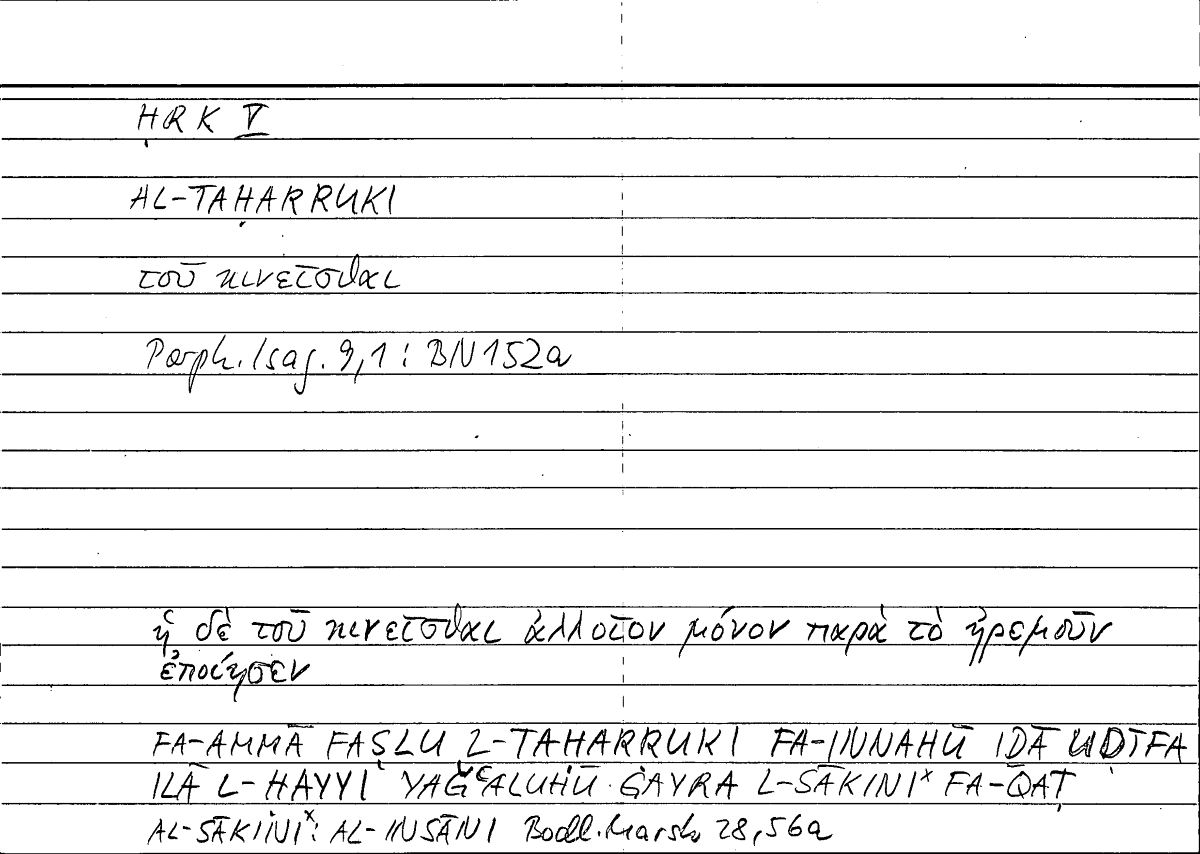 ḤRK V
AL-TAḤARRUKI
τοῦ κινεῖσθαι
Porph. Isag. 9,1 : BN 152a
ἡ δὲ τοῦ κινεῖσθαι ἀλλοῖον μόνον παρὰ τὸ ἠρεμοῦν
ἐποίησεν
FA-AMMĀ FAṢLU L-TAḤARRUKI FA-INNAHŪ IḎĀ UḌĪFA
ILĀ L-ḤAYYI YAǦʿALUHŪ ĠAYRA L-SĀKINIˣ FA-QAṬ
AL-SĀKINIˣ: AL-INSĀNI Bodl. Marsh 28,56a